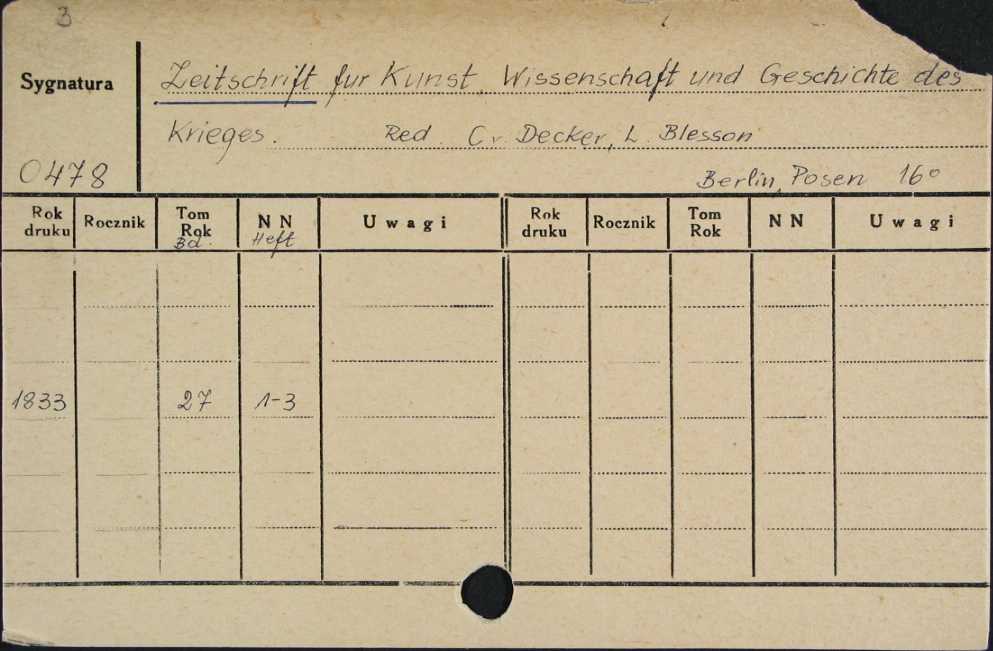 3
Sygnatura
Zeitschrift fur Kunst Wissenschaft und Geschichte des
Krieges. Red. C v. Decker, L. Blesson
0478
Berlin, Posen 16°
Rok druku Rocznik Tom Rok Bd. NN Heft Uwagi Rok druku Rocznik Tom Rok NN Uwagi
1833 27 1-3